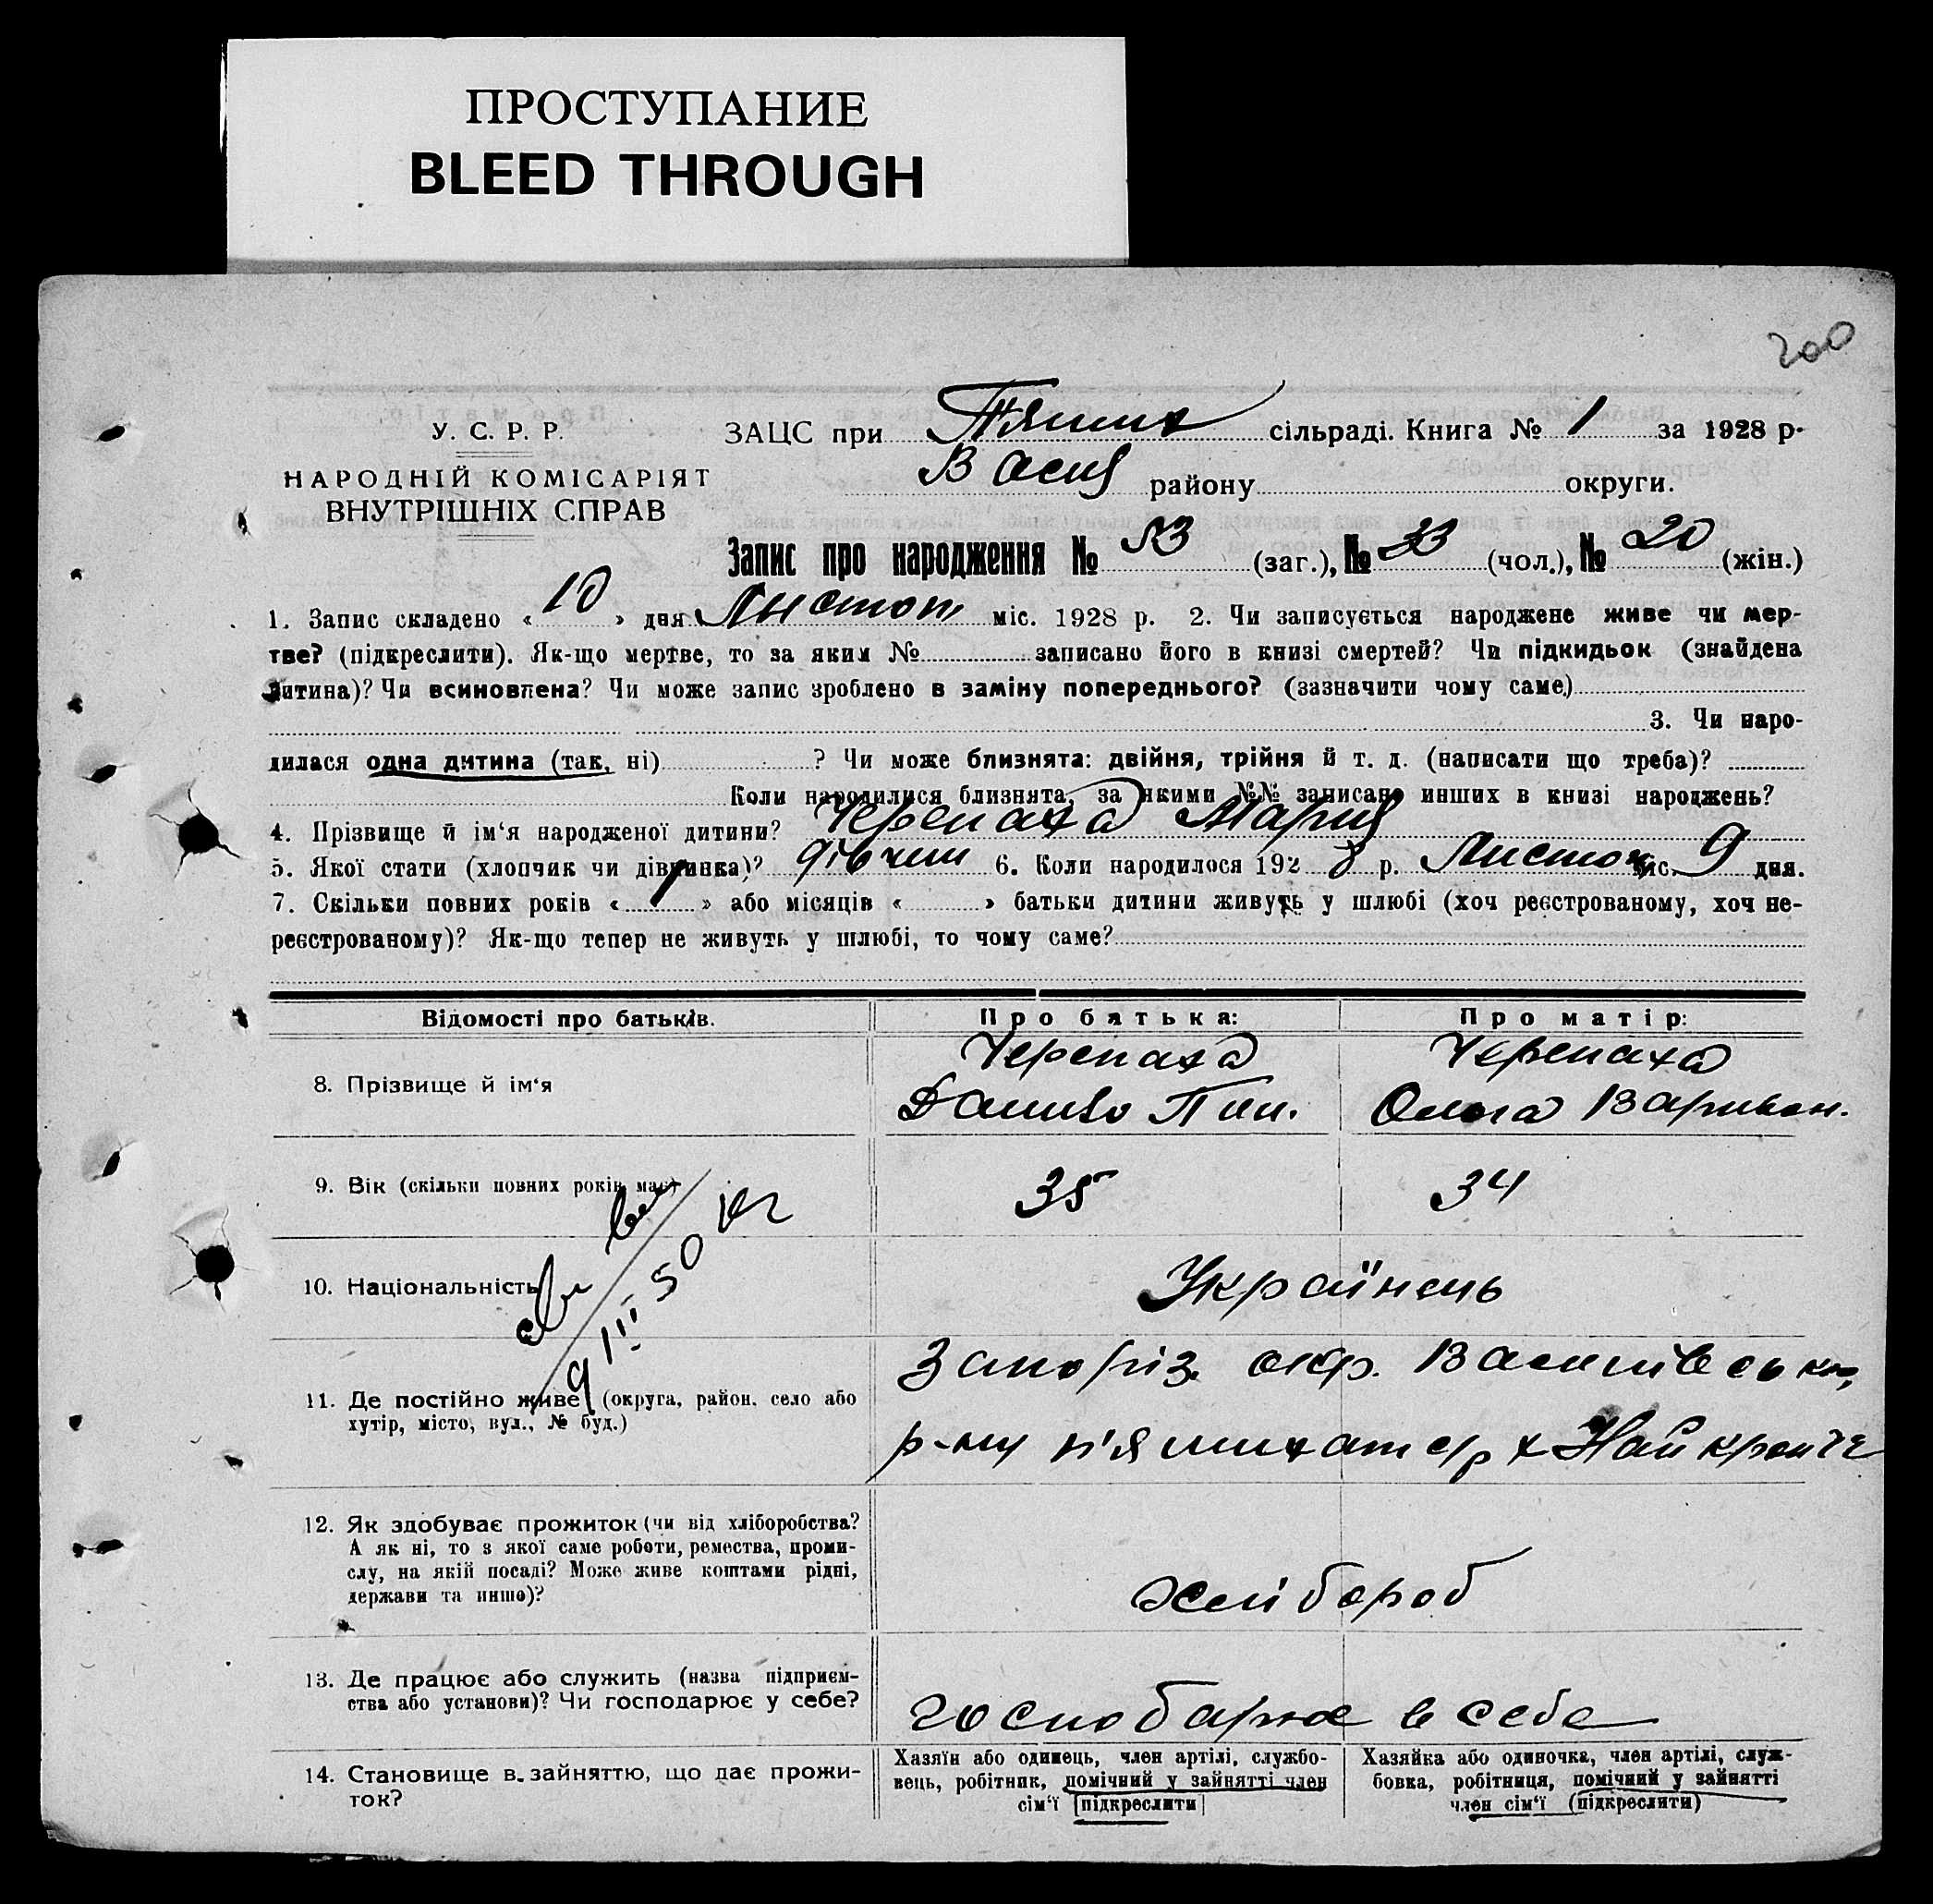 ПРОСТУПАНИЕ
BLEED THROUGH
200
У. С. Р. Р.
НАРОДНІЙ КОМІСАРІЯТ
ВНУТРІШНІХ СПРАВ
ЗАЦС при сільраді. Книга № 1 за 1928 р.
району округи.
Запис про народження № 53 (заг.), № 33 (чол.), № 20 (жін.)
1. Запис складено « 10 » дня Листоп міс. 1928 р. 2. Чи записується народжене живе чи мер-
тве? (підкреслити). Як-що мертве, то за яким № записано його в книзі смертей? Чи підкидьок (знайдена
дитина)? Чи всиновлена? Чи може запис зроблено в заміну попереднього? (зазначити чому саме)
3. Чи наро-
дилася одна дитина (так, ні) ? Чи може близнята: двійня, трійня й т. д. (написати що треба)?
Коли народилися близнята, за якими №№ записано инших в книзі народжень?
4. Прізвище й ім‘я народженої дитини? Черепаха Мария
5. Якої стати (хлопчик чи дівчинка)? дівчин 6. Коли народилося 1928 р. Листоп міс. 9 дня.
7. Скільки повних років « 1 » або місяців « » батьки дитини живуть у шлюбі (хоч реєстрованому, хоч не-
реєстрованому)? Як-що тепер не живуть у шлюбі, то чому саме?
Відомості про батьків. Про батька: Про матір:
8. Прізвище й ім‘я Черепаха Черепаха
Данило Пил. Ольга Вариван.
9. Вік (скільки повних років має) 35 34
10. Національність Українець
9/III 50
11. Де постійно живе (округа, район, село або
хутір, місто, вул., № буд.)
Запоріз. окр. Василівсько,
р-ну п'ятихат с/р х Найкраще
12. Як здобуває прожиток (чи від хліборобства?
А як ні, то з якої саме роботи, ремества, проми-
слу, на якій посаді? Може живе коштами рідні,
держави та инше)?
хлібороб
13. Де працює або служить (назва підприєм-
ства або установи)? Чи господарює у себе?
господарює в себе
14. Становище в зайняттю, що дає прожи-
ток?
Хазяїн або одинець, член артілі, службо-
вець, робітник, помічний у зайнятті член
сім‘ї (підкреслити)
Хазяйка або одиночка, член артілі, служ-
бовка, робітниця, помічний у зайнятті
член сім‘ї (підкреслити)